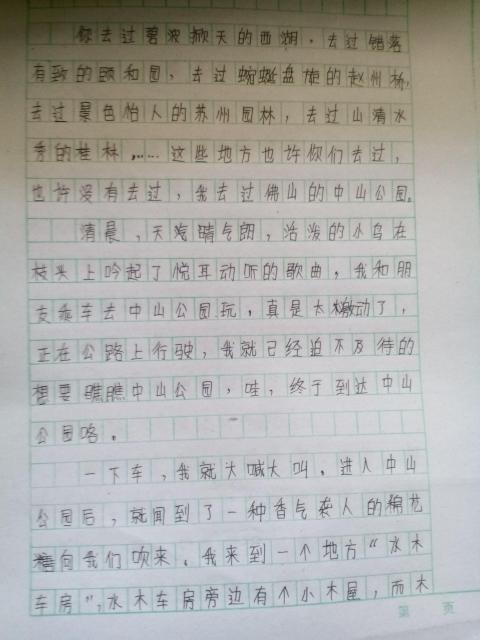 你去过碧波掀天的西湖，去过错落
有致的颐和园，去过蜿蜒盘旋的赵州桥，
去过景色怡人的苏州园林，去过山清水
秀的桂林，……这些地方也许你们去过，
也许没有去过，我去过佛山的中山公园。
清晨，天汽晴气朗，活泼的小鸟在
枝头上吟起了悦耳动听的歌曲，我和朋
友乘车去中山公园玩，真是太激动了，
正在公路上行驶，我就已经迫不及待的
想要瞧瞧中山公园，哇，终于到达中山
公园咯。
一下车，我就大喊大叫，进入中山
公园后，就闻到了一种香气袭人的棉花
向我们吹来。我来到一个地方“水木
车房”，水木车房旁边有个小木屋，而木
第 页